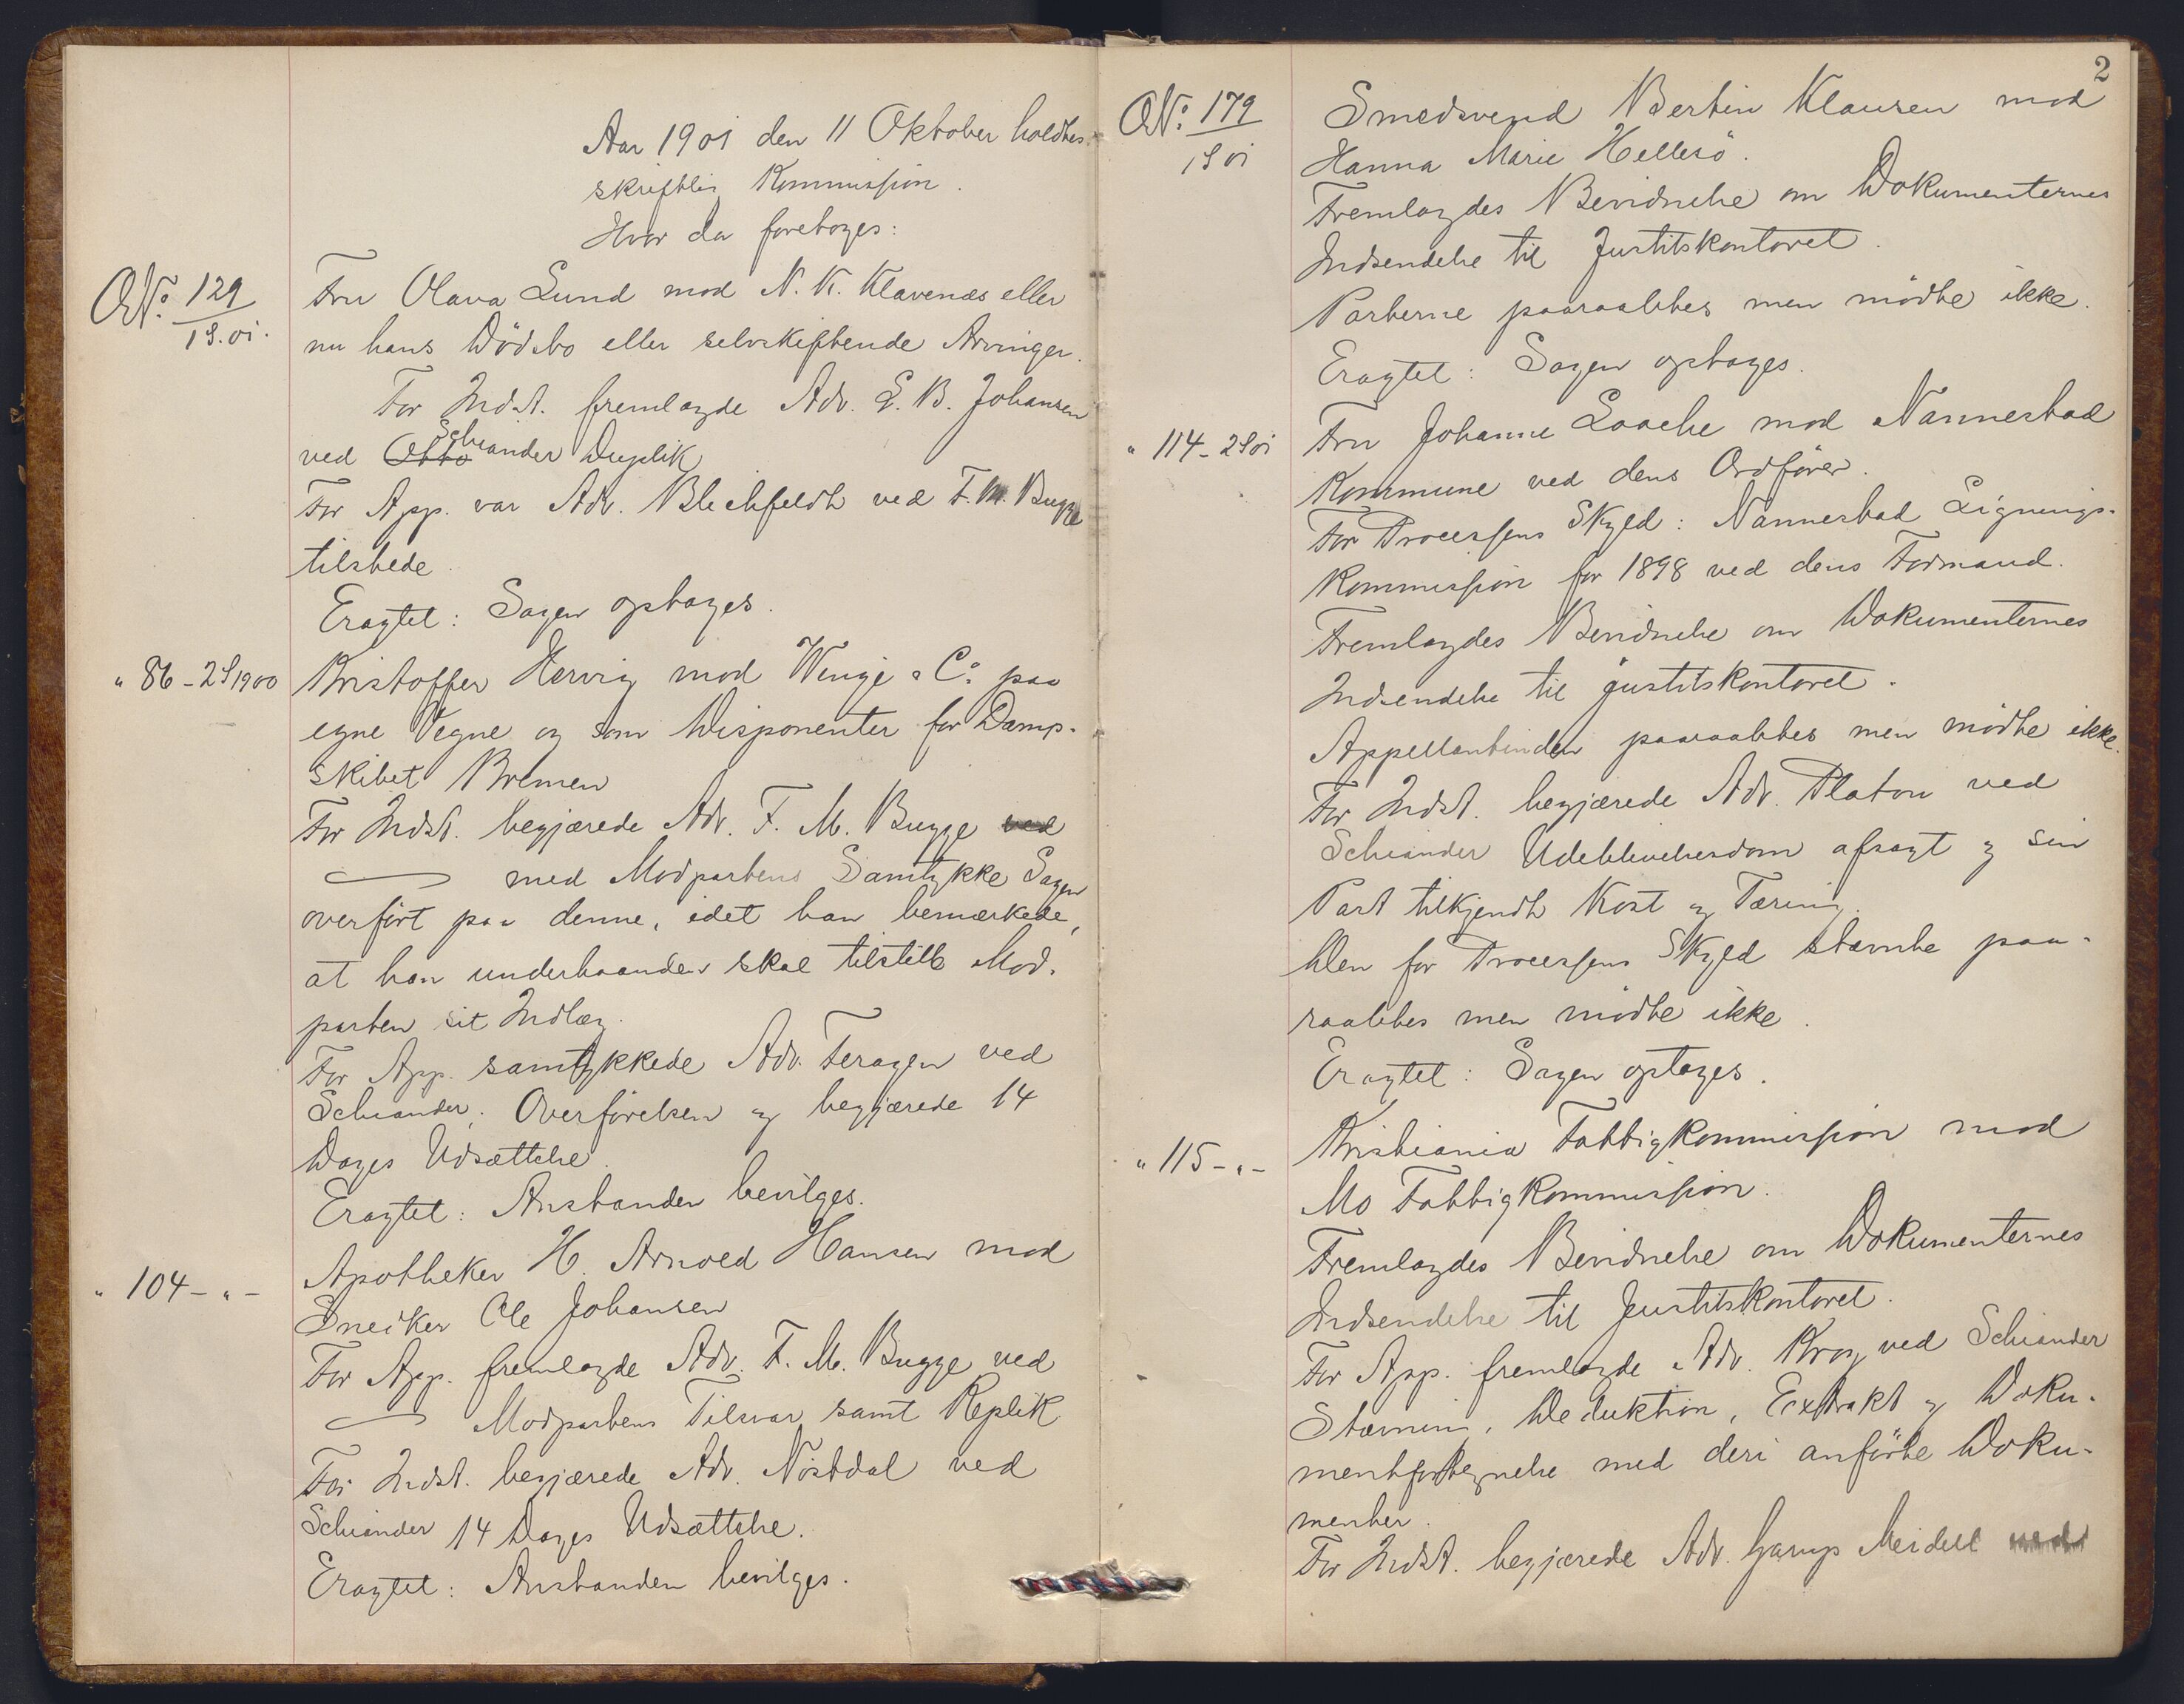 Aar 1901 den 11 Oktober holdtes
skriftlig Kommission.
Hvor da foretoges:
No. 129
1S. 01.
Fru Olava Lund mod N. K. Klavenæs eller
nu hans Dödsbo eller selvskiftende Arvinger.
For Indst. fremlagde Adv. E. B. Johansen
ved Otto Schiander Duplik
For App. var Adv. Blechfeldt ved F. M. Bugge
tilstede.
Eragtet: Sagen optages.
" 86 - 2S 1900
Kristoffer Hervig mod Winge & Co. paa
egne Vegne og som Disponenter for Damp-
skibet Bremen
For Indst. begjærede Adv. F. M. Bugge ved
med Modpartens Samtykke Sagen
overført paa denne, idet han bemærkede,
at han underhaanden skal tilstille Mod-
parten sit Indlæg.
For App. samtykkede Adv. Feragen ved
Schiander. Overførelsen og begjærede 14
Dages Udsættelse.
Eragtet: Anstanden bevilges.
" 104 - " -
Apotheker H. Arnold Hansen mod
Snedker Ole Johansen
For App. fremlagde Adv. F. M. Bugge ved
Modpartens Tilsvar samt Replik
For Indst. begjærede Adv. Nöstdal ved
Schiander 14 Dages Udsættelse.
Eragtet: Anstanden bevilges.
2
No. 179
1S 01
Smedsvend Bertin Klausen mod
Hanna Marie Hellesö.
Fremlagdes Bevidnelse om Dokumenternes
Indsendelse til Justitskontoret.
Parterne paaraabtes men mödte ikke.
Eragtet: Sagen optages.
" 114 - 2S 01
Fru Johanne Laache mod Nannestad
Kommune ved dens Ordförer.
For Processens Skyld: Nannestad Lignings-
kommission for 1898 ved dens Formand.
Fremlagdes Bevidnelse om Dokumenternes
Indsendelse til Justitskontoret.
Appellantinden paaraabtes men mödte ikke.
For Indst. begjærede Adv. Platou ved
Schiander Udeblivelsesdom afsagt og sin
Part tilkjendt Kost og Tæring.
Den for Processens Skyld stævnte paa-
raabtes men mödte ikke.
Eragtet: Sagen optages.
" 115 - " -
Kristiania Fattigkommission mod
Mo Fattigkommission.
Fremlagdes Bevidnelse om Dokumenternes
Indsendelse til Justitskontoret.
For App. fremlagde Adv. Krog ved Schiander
Stævning, Deduktion, Extrakt og Doku-
mentfortegnelse med deri anförte Doku-
menter.
For Indst. begjærede Adv. Harrys Meidell ved